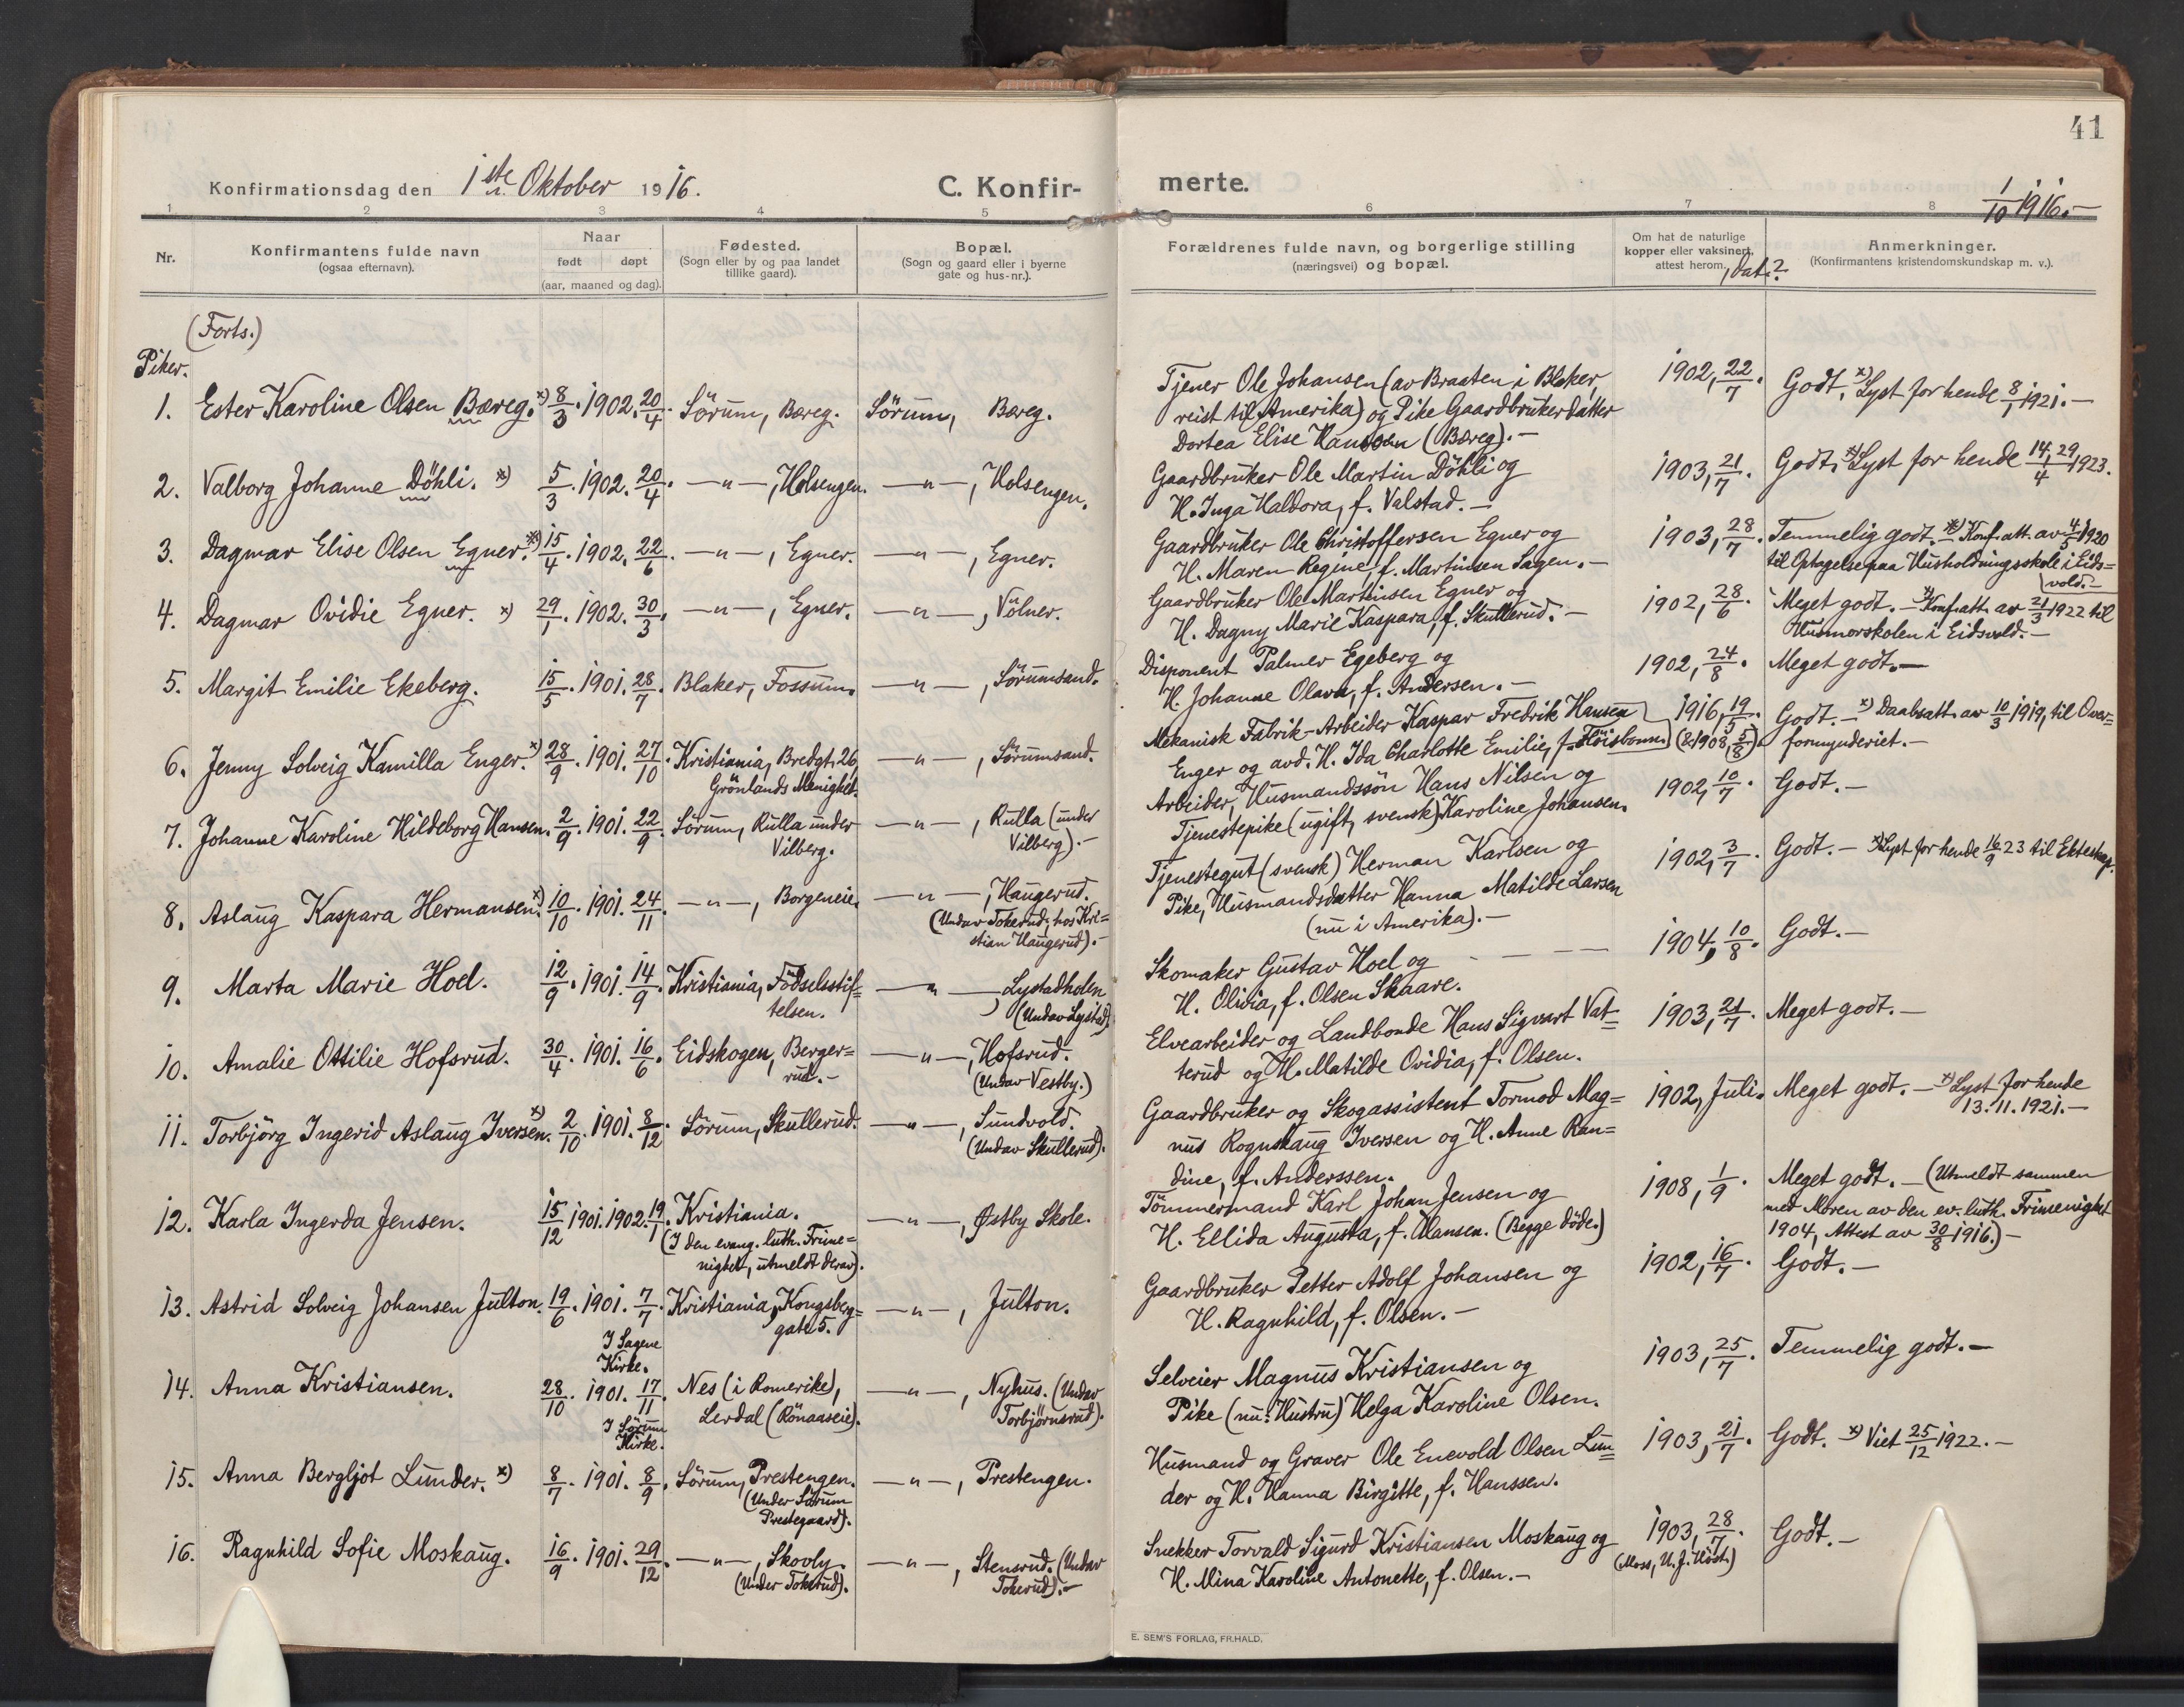 41
Konfirmationsdag den 1ste Oktober 1916.
C. Konfirmerte.
1/10 1916.-
1 2 3 4 5 6 7 8
Nr.
Konfirmantens fulde navn
(ogsaa efternavn).
Naar
født døpt
(aar, maaned og dag).
Fødested.
(Sogn eller by og paa landet
tillike gaard).
Bopæl.
(Sogn og gaard eller i byerne
gate og hus-nr.).
Forældrenes fulde navn, og borgerlige stilling
(næringsvei) og bopæl.
Om hat de naturlige
kopper eller vaksinert,
attest herom, dat.?
Anmerkninger.
(Konfirmantens kristendomskundskap m. v.).
(Forts.)
Piker.
1. Ester Karoline Olsen Bæreg. x) 8/3. 1902. 20/4. Sörum, Bæreg. Sörum, Bæreg.
Tjener Ole Johansen (av Braaten i Blaker,
reist til Amerika) og Pike Gaardbrukerdatter
Dortea Elise Hanssen (Bæreg).-
1902, 22/7. Godt. x) Lyst for hende 8/1 1921.-
2. Valborg Johanne Döhli. x) 5/3. 1902. 20/4. —"—, Holsengen. —"—, Holsengen.
Gaardbruker Ole Martin Döhli og
H. Inga Haldora, f. Valstad.-
1903, 21/7. Godt. x) Lyst for hende 14, 29/4 1923.
3. Dagmar Elise Olsen Egner. x) 15/4. 1902. 22/6. —"—, Egner. —"—, Egner.
Gaardbruker Ole Christoffersen Egner og
H. Maren Regine, f. Martinsen Sagen.-
1903, 28/7. Temmelig godt. x) Konf. att. av 4/5 1920
til Optagelse paa Husholdningsskole i Eids=
vold.-
4. Dagmar Ovidie Egner. x) 29/1. 1902. 30/3. —"—, Egner. —"—, Völner.
Gaardbruker Ole Martinsen Egner og
H. Dagny Marie Kaspara, f. Skullerud.-
1902, 28/6. Meget godt.- x) Konf. att. av 21/3 1922 til
Husmorskolen i Eidsvold.-
5. Margit Emilie Ekeberg. 15/5. 1901. 28/7. Blaker, Fossum. —"—, Sörumsand.
Disponent Palmer Egeberg og
H. Johanne Olava, f. Andersen.-
1902, 24/8. Meget godt.-
6. Jenny Solveig Kamilla Enger. x) 28/9. 1901. 27/10. Kristiania, Bredgt. 26, —"—, Sörumsand.
Grönlands Menighet.
Mekanisk Fabrik-Arbeider Kaspar Fredrik Hansen
Enger og avd. H. Ida Charlotte Emilie, f. Höisbonn.
1916, 19/5. (& 1908, 5/8). Godt.- x) Daabsatt. av 10/3 1919, til Over=
formynderiet.-
7. Johanne Karoline Hildeborg Hansen. 2/9. 1901. 22/9. Sörum, Rulla under —"—, Rulla (under
Vilberg. Vilberg).-
Arbeider, Husmandssön Hans Nilsen og
Tjenestepike (ugift, svensk) Karoline Johansen.
1902, 10/7. Godt.-
8. Aslaug Kaspara Hermansen. x) 10/10. 1901. 24/11. —"—, Borgeneie. —"—, Haugerud.
(Undav Tokerud; hos Kri=
stian Haugerud).-
Tjenestegut (svensk) Herman Karlsen og
Pike, Husmandsdatter Hanna Matilde Larsen
(nu i Amerika).-
1902, 3/7. Godt.- x) Lyst for hende 16/9 23 til Ekteskap.
9. Marta Marie Hoel. 12/9. 1901. 14/9. Kristiania, Födselsstif= —"—, Lystadholen
telsen. (Undav Lystad)
Skomaker Gustav Hoel og
H. Olivia, f. Olsen Skaare.
1904, 10/8. Godt.-
10. Amalie Ottilie Hofsrud. 30/4. 1901. 16/6. Eidskogen, Berger= —"—, Hofsrud.
rud.- (Undav Vestby.)
Elvearbeider og Landbonde Hans Sigvart Vat=
terud og H. Matilde Ovidia, f. Olsen.
1903, 21/7. Meget godt.-
11. Torbjörg Ingerid Aslaug Iversen. x) 2/10. 1901. 8/12. Sörum, Skullerud. —"—, Sundvold.
(Undav Skullerud).
Gaardbruker og Skogassistent Tormod Mag=
nus Rognskaug Iversen og H. Anne Ran=
dine, f. Anderssen.
1902, Juli. Meget godt.- x) Lyst for hende
13.11.1921.-
12. Karla Ingerda Jensen. 15/12 1901. 1902. 19/1. Kristiania. —"—, Østby Skole.
(I den evang. luth. Frime=
nighet, utmeldt derav).
Tömmermand Karl Johan Jensen og
H. Ellida Augusta, f. Hansen. (Begge döde.)
1908, 1/9. Meget godt.- (Utmeldt sammen
med Moren av den ev. luth. Frimenighet
1904, Attest av 30/8 1916.)-
13. Astrid Solveig Johansen Julton. 19/6. 1901. 7/7. Kristiania, Kongsberg= —"—, Julton.
gate 5.
I Sagene
Kirke.
Gaardbruker Petter Adolf Johansen og
H. Ragnhild, f. Olsen.-
1902, 16/7. Godt.-
14. Anna Kristiansen. 28/10. 1901. 17/11. Nes (i Romerike), —"—, Nyhus. (Undav
Lerdal (Rönaaseie). Torbjörnsrud).
I Sörum
Kirke.
Selveier Magnus Kristiansen og
Pike (nu: Hustru) Helga Karoline Olsen.
1903, 25/7. Temmelig godt.-
15. Anna Bergljot Lunder. x) 8/7. 1901. 8/9. Sörum, Prestengen. —"—, Prestengen.
(Under Sörum
Prestegaard).
Husmand og Graver Ole Enevold Olsen Lun=
der og H. Hanna Birgitte, f. Hanssen.
1903, 21/7. Godt. x) Viet 25/12 1922.-
16. Ragnhild Sofie Moskaug. 16/9. 1901. 29/12. —"—, Skovly. —"—, Stensrud. (Undav
(Under Tokerud). Tokerud).-
Snekker Torvald Sigurd Kristiansen Moskaug og
H. Mina Karoline Antonette, f. Olsen.-
1903, 28/7. (Moss, U. J. Höst.) Godt.-
E. SEM'S FORLAG, FR.HALD.